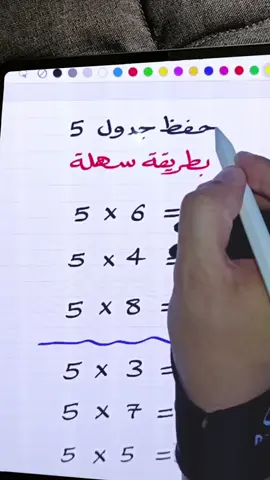 حفظ جدول 5
بطريقة سهلة
5 x 6 =
5 x 4 =
5 x 8 =
5 x 3 =
5 x 7 =
5 x 5 =